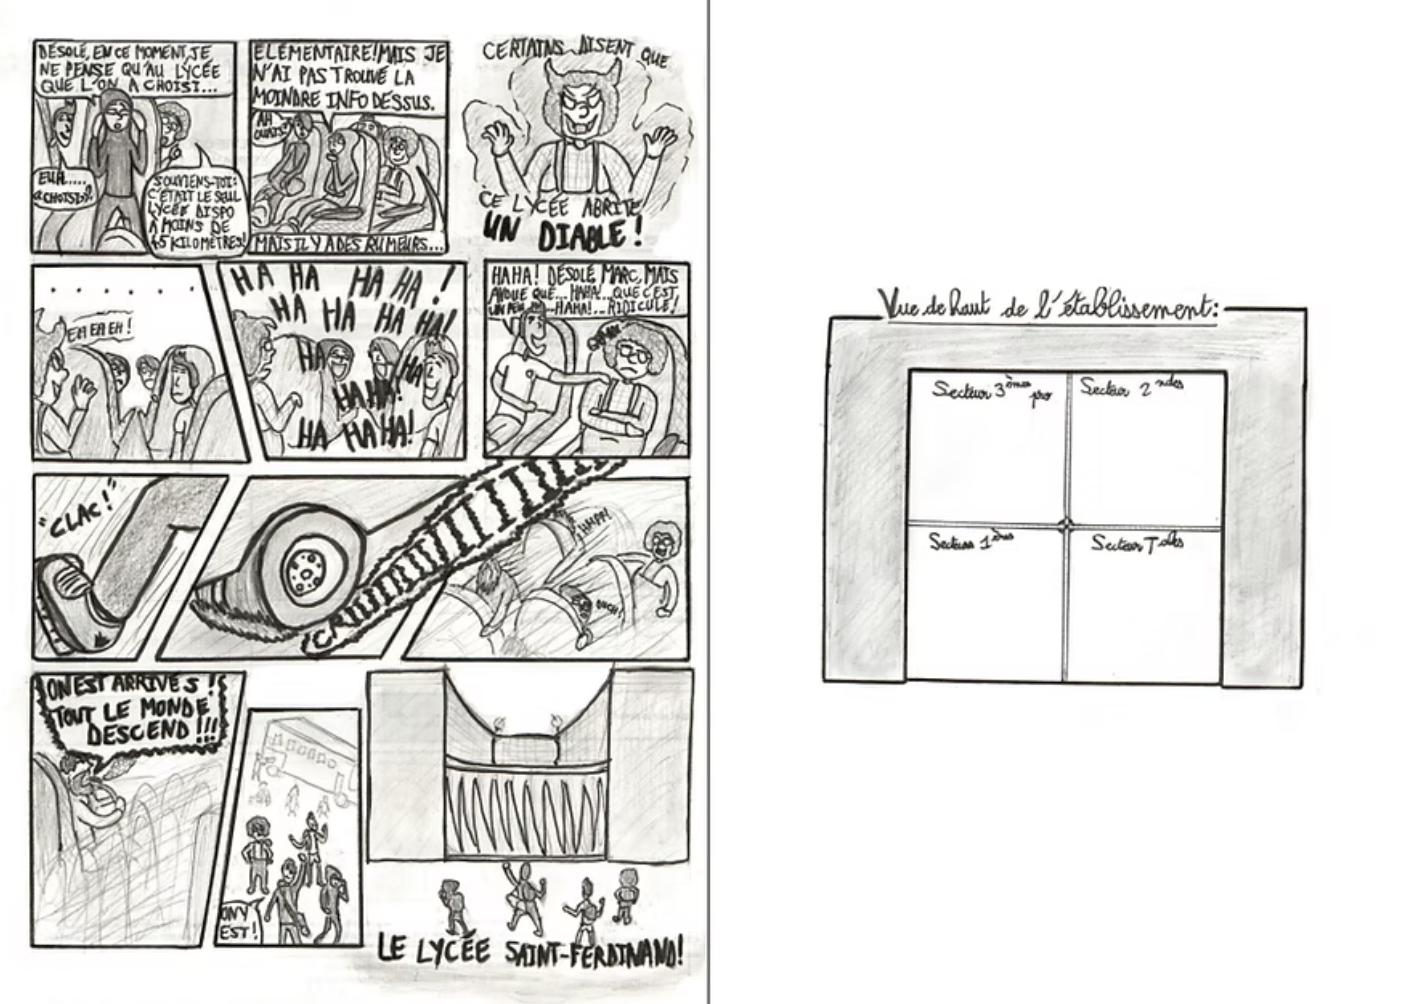 DÉSOLÉ, EN CE MOMENT, JE
NE PENSE QU'AU LYCÉE
QUE L'ON A CHOISI...
EUH.....
CHOISI?
SOUVIENS-TOI:
C'ÉTAIT LE SEUL
LYCÉE DISPO
À MOINS DE
45 KILOMÈTRES!
ELÉMENTAIRE! MAIS JE
N'AI PAS TROUVÉ LA
MOINDRE INFO DESSUS.
AH
OUAIS?
MAIS IL Y A DES RUMEURS...
CERTAINS DISENT QUE
CE LYCÉE ABRITE
UN DIABLE!
. . . . . . .
EH EH EH!
HA HA HA HA!
HA HA HA HA!
HA HA
HA HA!
HA HA HA!
HAHA! DÉSOLÉ, MARC, MAIS
AVOUE QUE... HAHA!... QUE C'EST
UN PEU ...HAHA!... RIDICULE!
"CLAC!"
OUCH!
ON EST ARRIVÉS!
TOUT LE MONDE
DESCEND!!!
ON Y
EST!
LE LYCÉE SAINT-FERDINAND!
Vue de haut de l'établissement:
Secteur 3èmes pro
Secteur 2ndes
Secteur 1ères
Secteur Tales